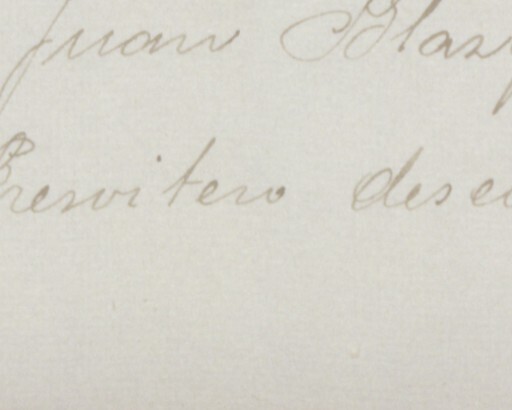 Juan Blaz
Presvitero dese